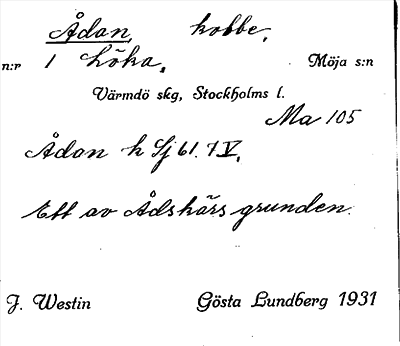 Ådan, kobbe,
n:r 1 Löka, Möja s:n
Värmdö skg, Stockholms l.
Ma 105
Ådan k Sj 61. 7 V.
Ett av Ådskärsgrunden.
J. Westin Gösta Lundberg 1931